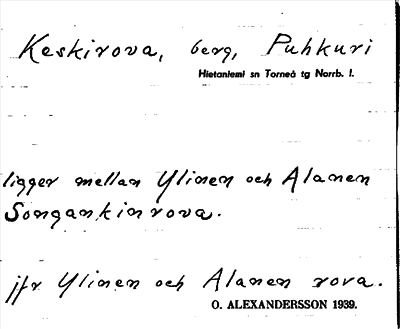 Keskirova, berg, Puhkuri
Hietaniemi sn Torneå tg Norrb. l.
ligger mellan Ylinen och Alanen
Songankinrova.
jfr Ylinen och Alanen rova.
O. ALEXANDERSSON 1939.